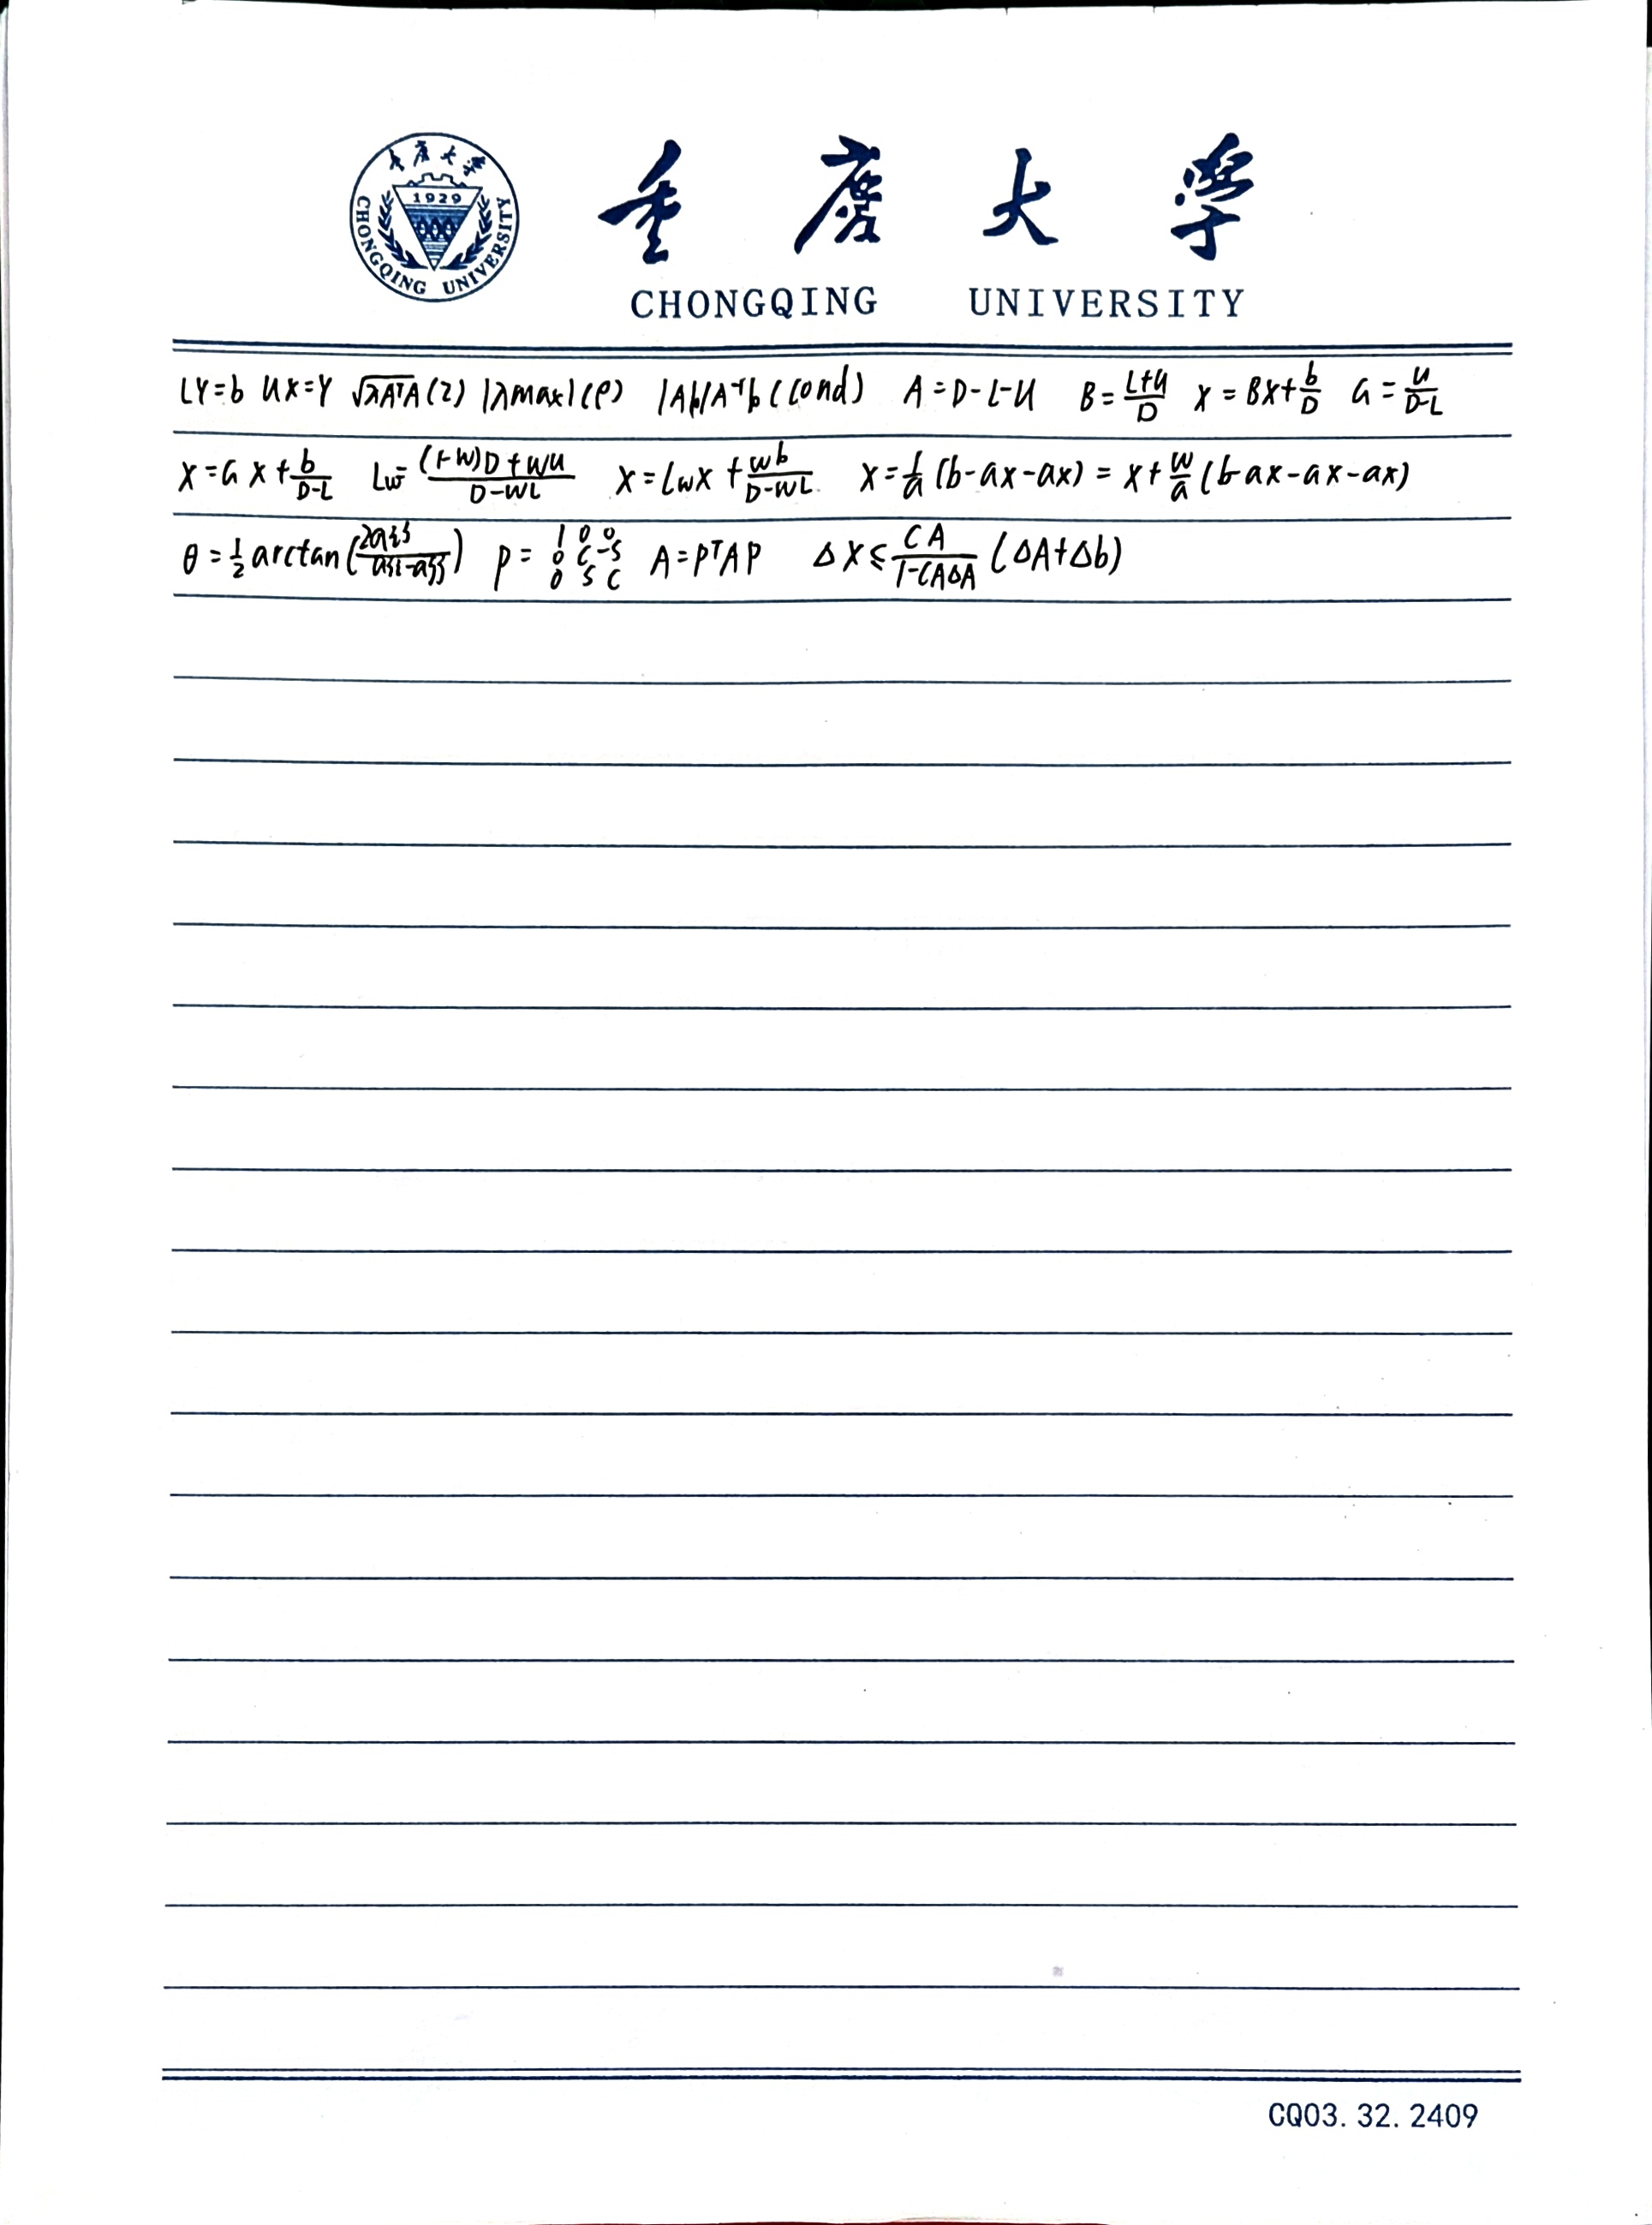 重庆大学
1929
CHONGQING UNIVERSITY
重庆大学
CHONGQING UNIVERSITY
LY=b UX=Y √λAᵀA(2) |λmax|(ρ) |A|b|A⁻¹|b(Cond) A=D-L-U B=(L+U)/D X=BX+b/D G=U/(D-L)
X=GX+b/(D-L) Lw=((1-W)D+WU)/(D-WL) X=LwX+wb/(D-WL) X=1/a(b-ax-ax)=X+w/a(b-ax-ax-ax)
θ=1/2 arctan(2aij/(aii-ajj)) P= 1 0 0 0 C -S 0 S C A=PᵀAP ΔX≤CA/(1-CAΔA)(ΔA+Δb)
CQ03.32.2409